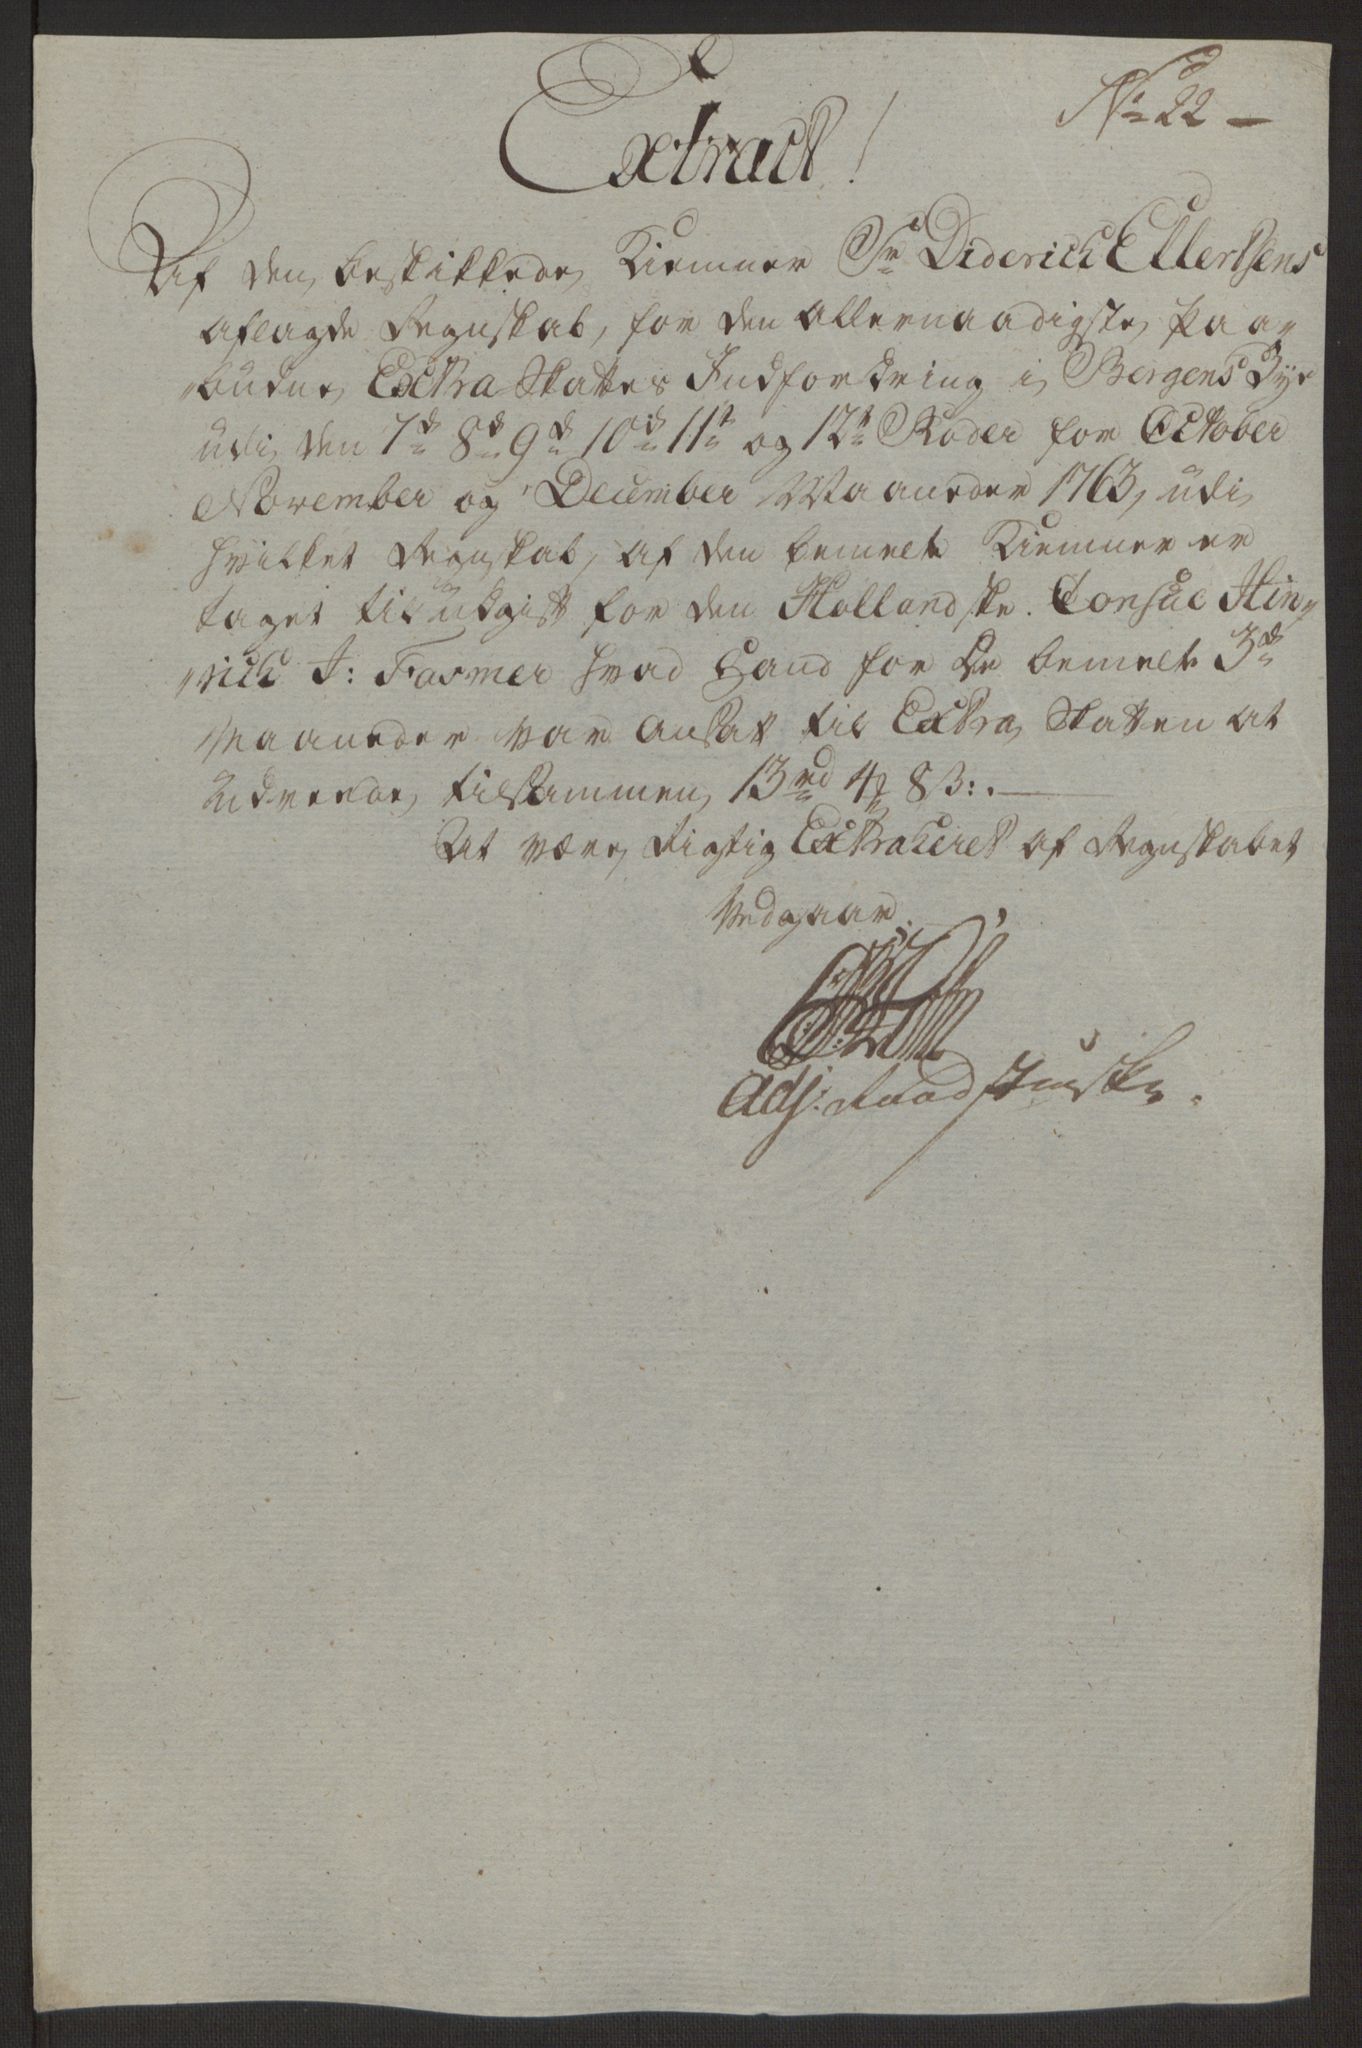 No 22
Extract!
Af den beskikkede Kiemner Sr Diderich Ellertsens
aflagde Regnskab, for den allernaadigste paa-
budne Exttra Skattes Indfordring i Bergens Bye
udi den 7de 8de 9de 10de 11te og 12te Roder for October
November og December Maaneder 1763, udi
hvilket Regnskab, af den bemelte Kiemner er
taget til udgift for den Hollandske Consul Hin-
rich J: Fasmer hvad Hand for de bemelte 3de
Maaneder var ansat til Exttra Skatten at
udreede, tilsammen 13rd 4ꝑ 8β:.
At være rigtig Exttraheret af Regnskabet
Vedgaar
Adj: Raadstueskr.